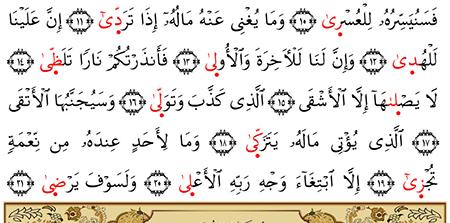 فَسَنُيَسِّرُهُۥ لِلْعُسْرَىٰ ﴿١٠﴾ وَمَا يُغْنِى عَنْهُ مَالُهُۥٓ إِذَا تَرَدَّىٰٓ ﴿١١﴾ إِنَّ عَلَيْنَا
لَلْهُدَىٰ ﴿١٢﴾ وَإِنَّ لَنَا لَلْـَٔاخِرَةَ وَٱلْأُولَىٰ ﴿١٣﴾ فَأَنذَرْتُكُمْ نَارًا تَلَظَّىٰ ﴿١٤﴾
لَا يَصْلَىٰهَآ إِلَّا ٱلْأَشْقَى ﴿١٥﴾ ٱلَّذِى كَذَّبَ وَتَوَلَّىٰ ﴿١٦﴾ وَسَيُجَنَّبُهَا ٱلْأَتْقَى
﴿١٧﴾ ٱلَّذِى يُؤْتِى مَالَهُۥ يَتَزَكَّىٰ ﴿١٨﴾ وَمَا لِأَحَدٍ عِندَهُۥ مِن نِّعْمَةٍ
تُجْزَىٰٓ ﴿١٩﴾ إِلَّا ٱبْتِغَآءَ وَجْهِ رَبِّهِ ٱلْأَعْلَىٰ ﴿٢٠﴾ وَلَسَوْفَ يَرْضَىٰ ﴿٢١﴾